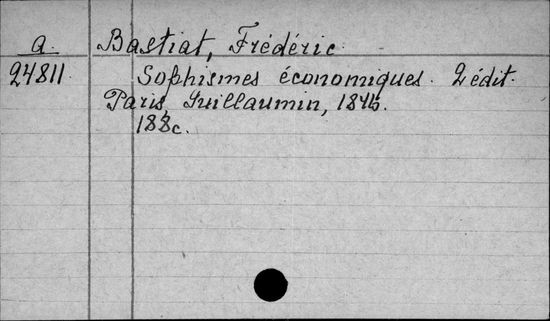 a. Bastiat, Frédéric
24811. Sophismes économiques. 2 édit.
Paris, Guillaumin, 1846.
188c.